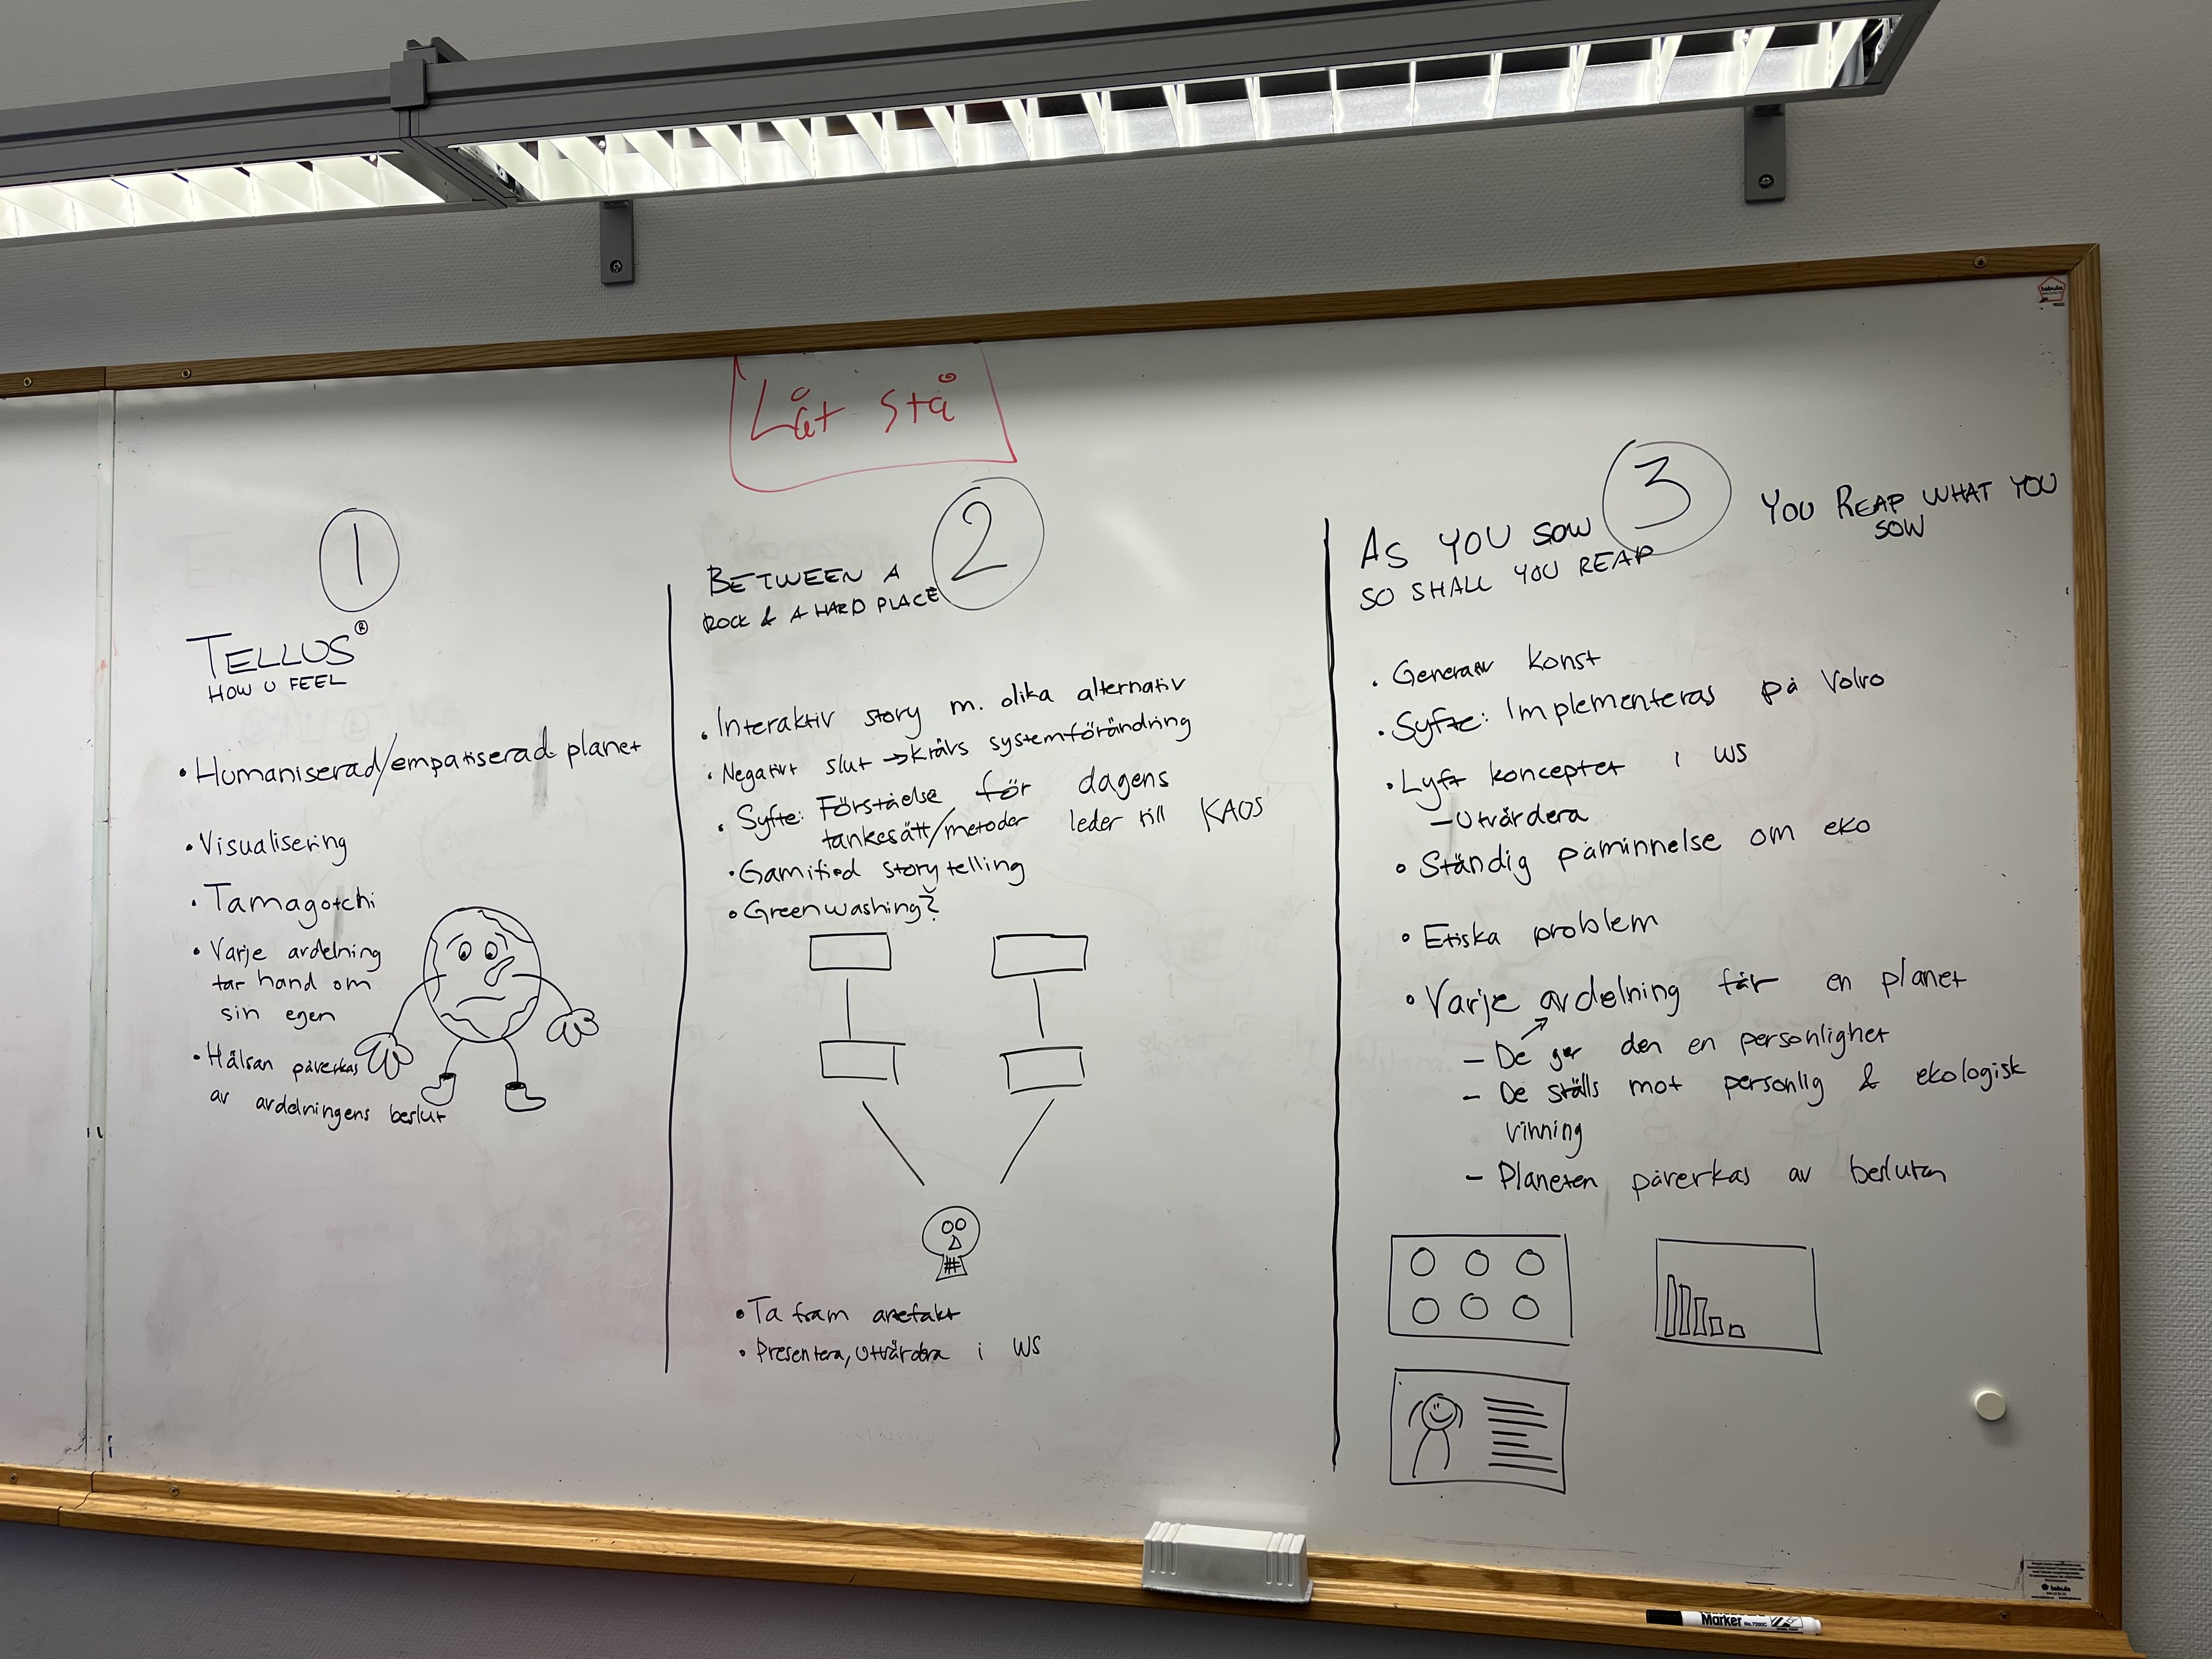 Låt stå
1
TELLUS®
HOW U FEEL
• Humaniserad/empatiserad planet
• Visualisering
• Tamagotchi
• Varje avdelning
tar hand om
sin egen
• Hälsan påverkas
av avdelningens beslut
2
BETWEEN A
ROCK & A HARD PLACE
• Interaktiv story m. olika alternativ
• Negativt slut → Krävs systemförändring
• Syfte: Förståelse för dagens
tankesätt/metoder leder till KAOS
• Gamified storytelling
• Greenwashing?
• Ta fram artefakt
• Presentera, Utvärdera i WS
3
AS YOU SOW
SO SHALL YOU REAP
YOU REAP WHAT YOU
SOW
• Generativ konst
• Syfte: Implementeras på Volvo
• Lyft konceptet i WS
– Utvärdera
• Ständig påminnelse om eko
• Etiska problem
• Varje avdelning får en planet
– De ger den en personlighet
– De ställs mot personlig & ekologisk
vinning
– Planeten påverkas av besluten
tabula
Marker